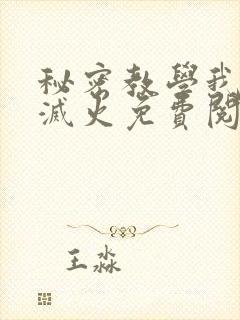 秘密教學我
滅火免費閱
王淼